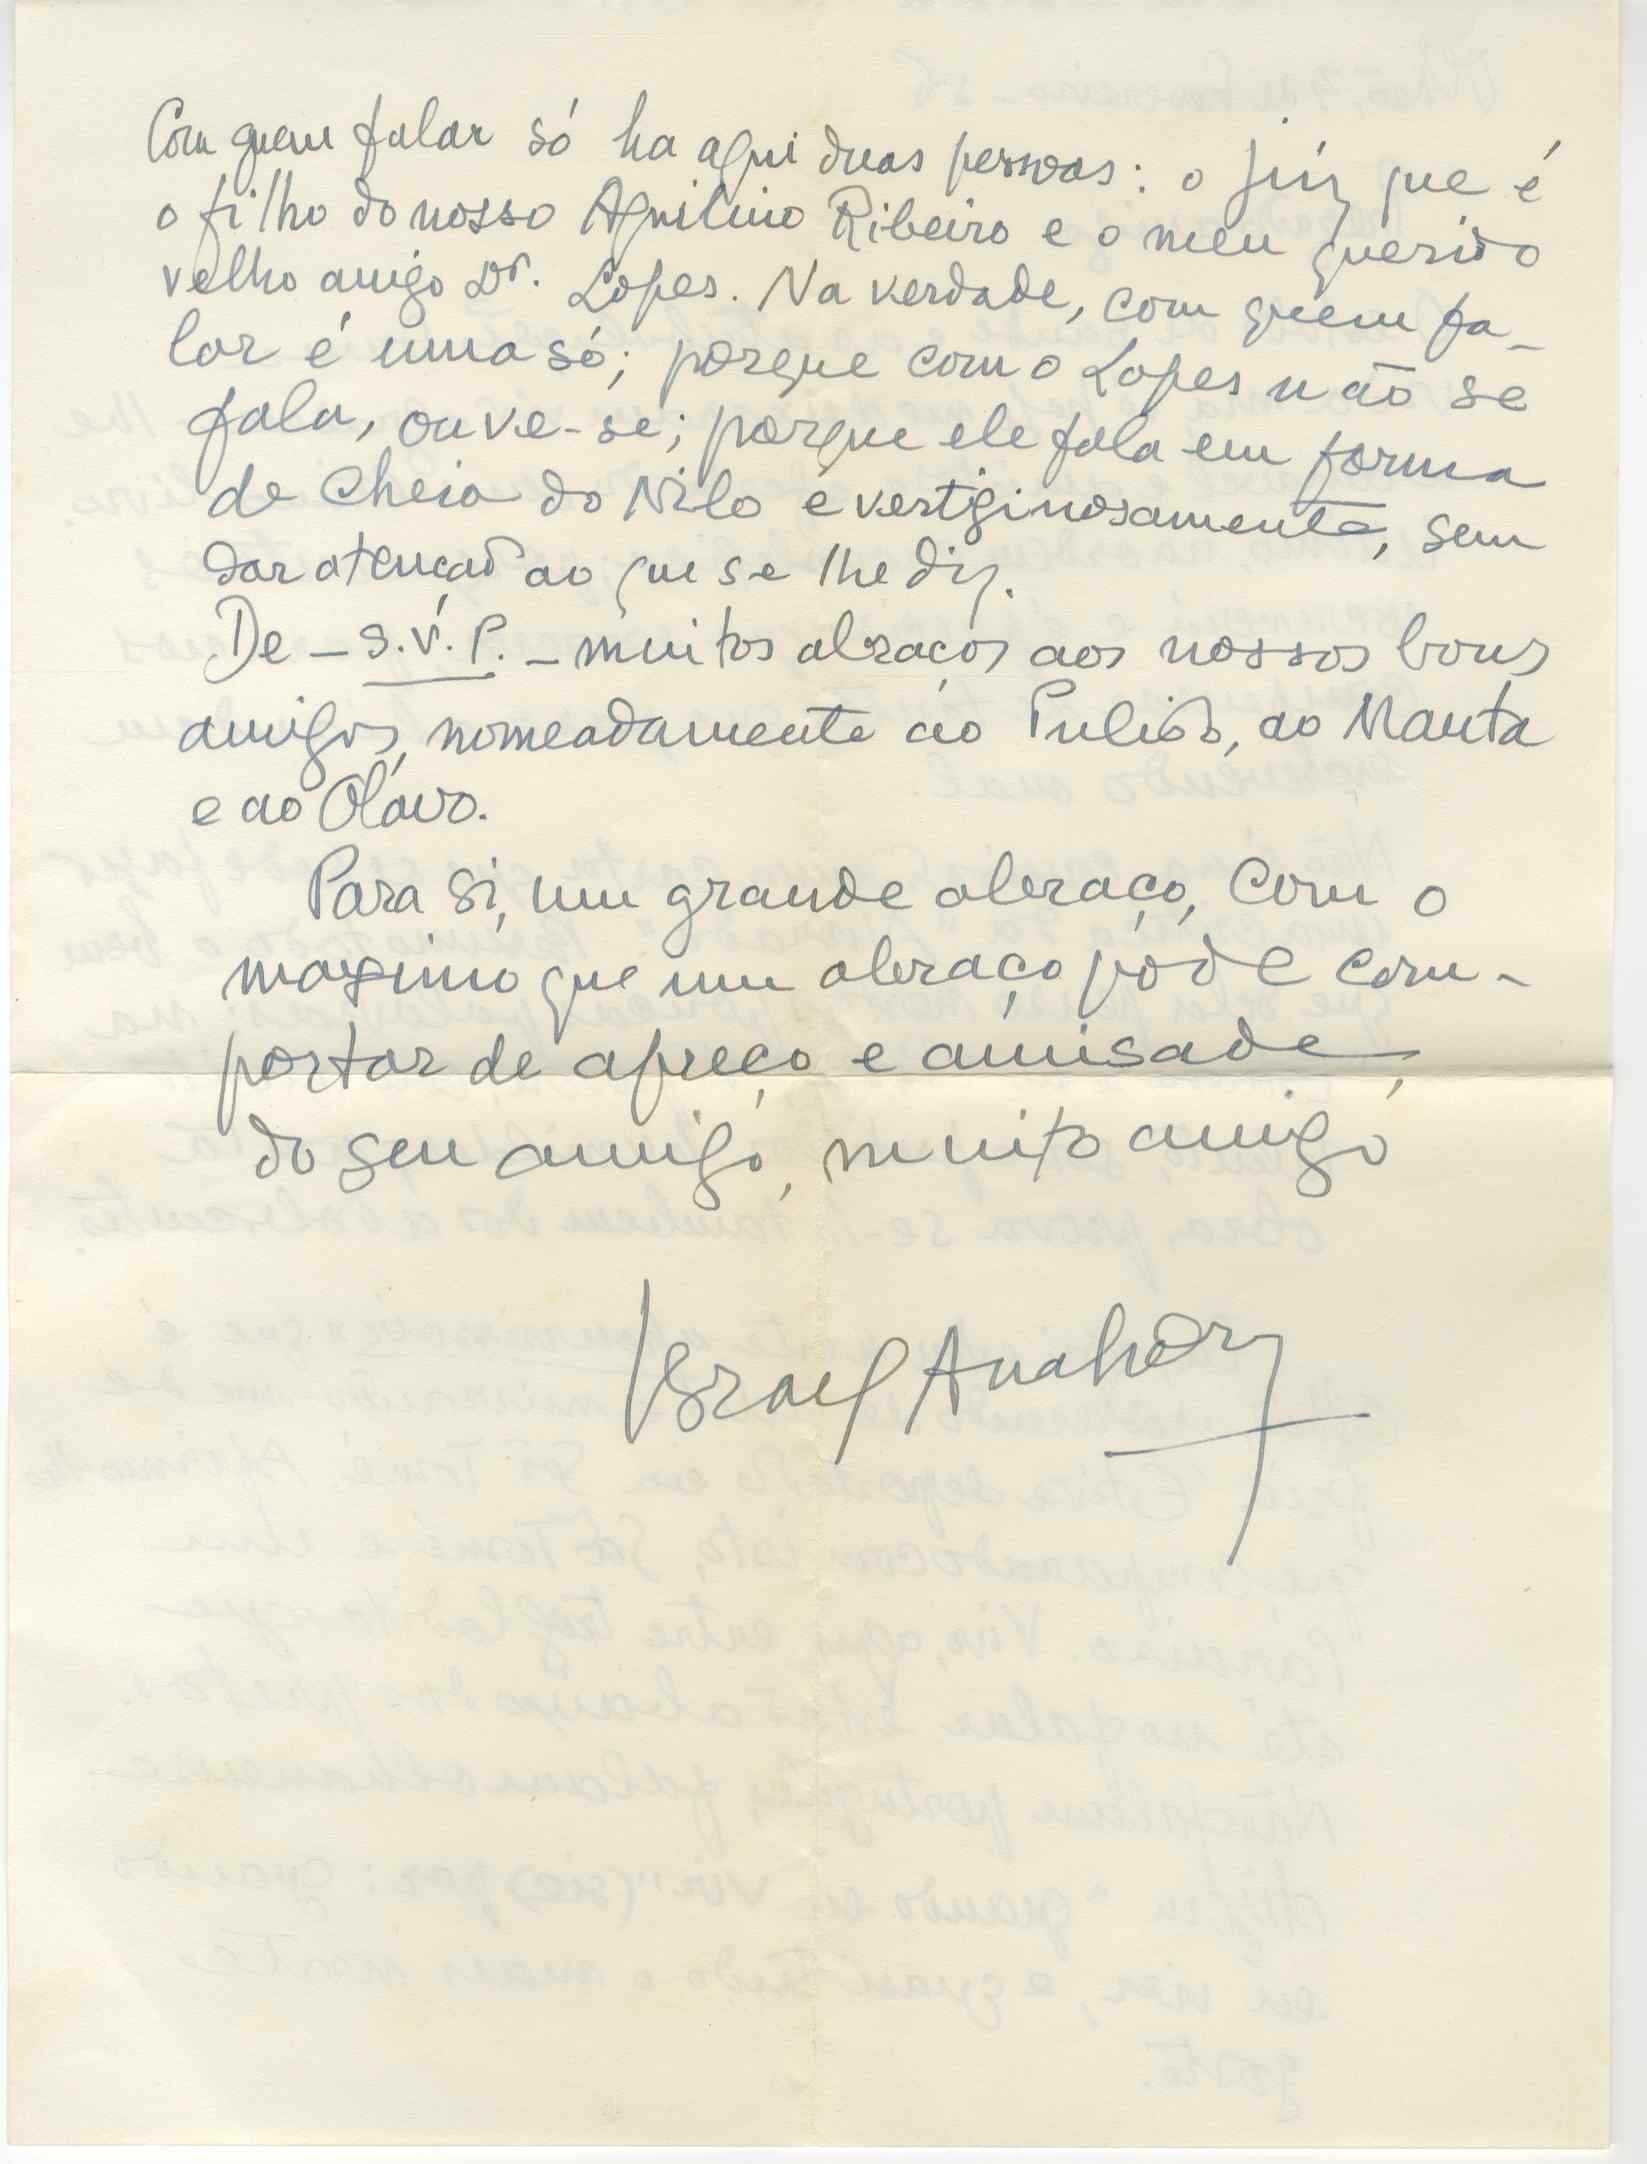 Com quem falar só ha aqui duas pessoas: o juiz que é
o filho do nosso Aquilino Ribeiro e o meu querido
velho amigo Dr. Lopes. Na verdade, com quem fa-
lar é uma só; porque com o Lopes não se
fala, ouve-se; porque ele fala em forma
de cheia do Nilo e vertiginosamente, sem
dar atenção ao que se lhe diz.
De - S.V.P. - muitos abraços aos nossos bons
amigos, nomeadamente ao Pulido, ao Manta
e ao Olavo.
Para si, um grande abraço, com o
maximo que um abraço póde com-
portar de apreço e amisade,
do seu amigo, muito amigo
Israel Anahory